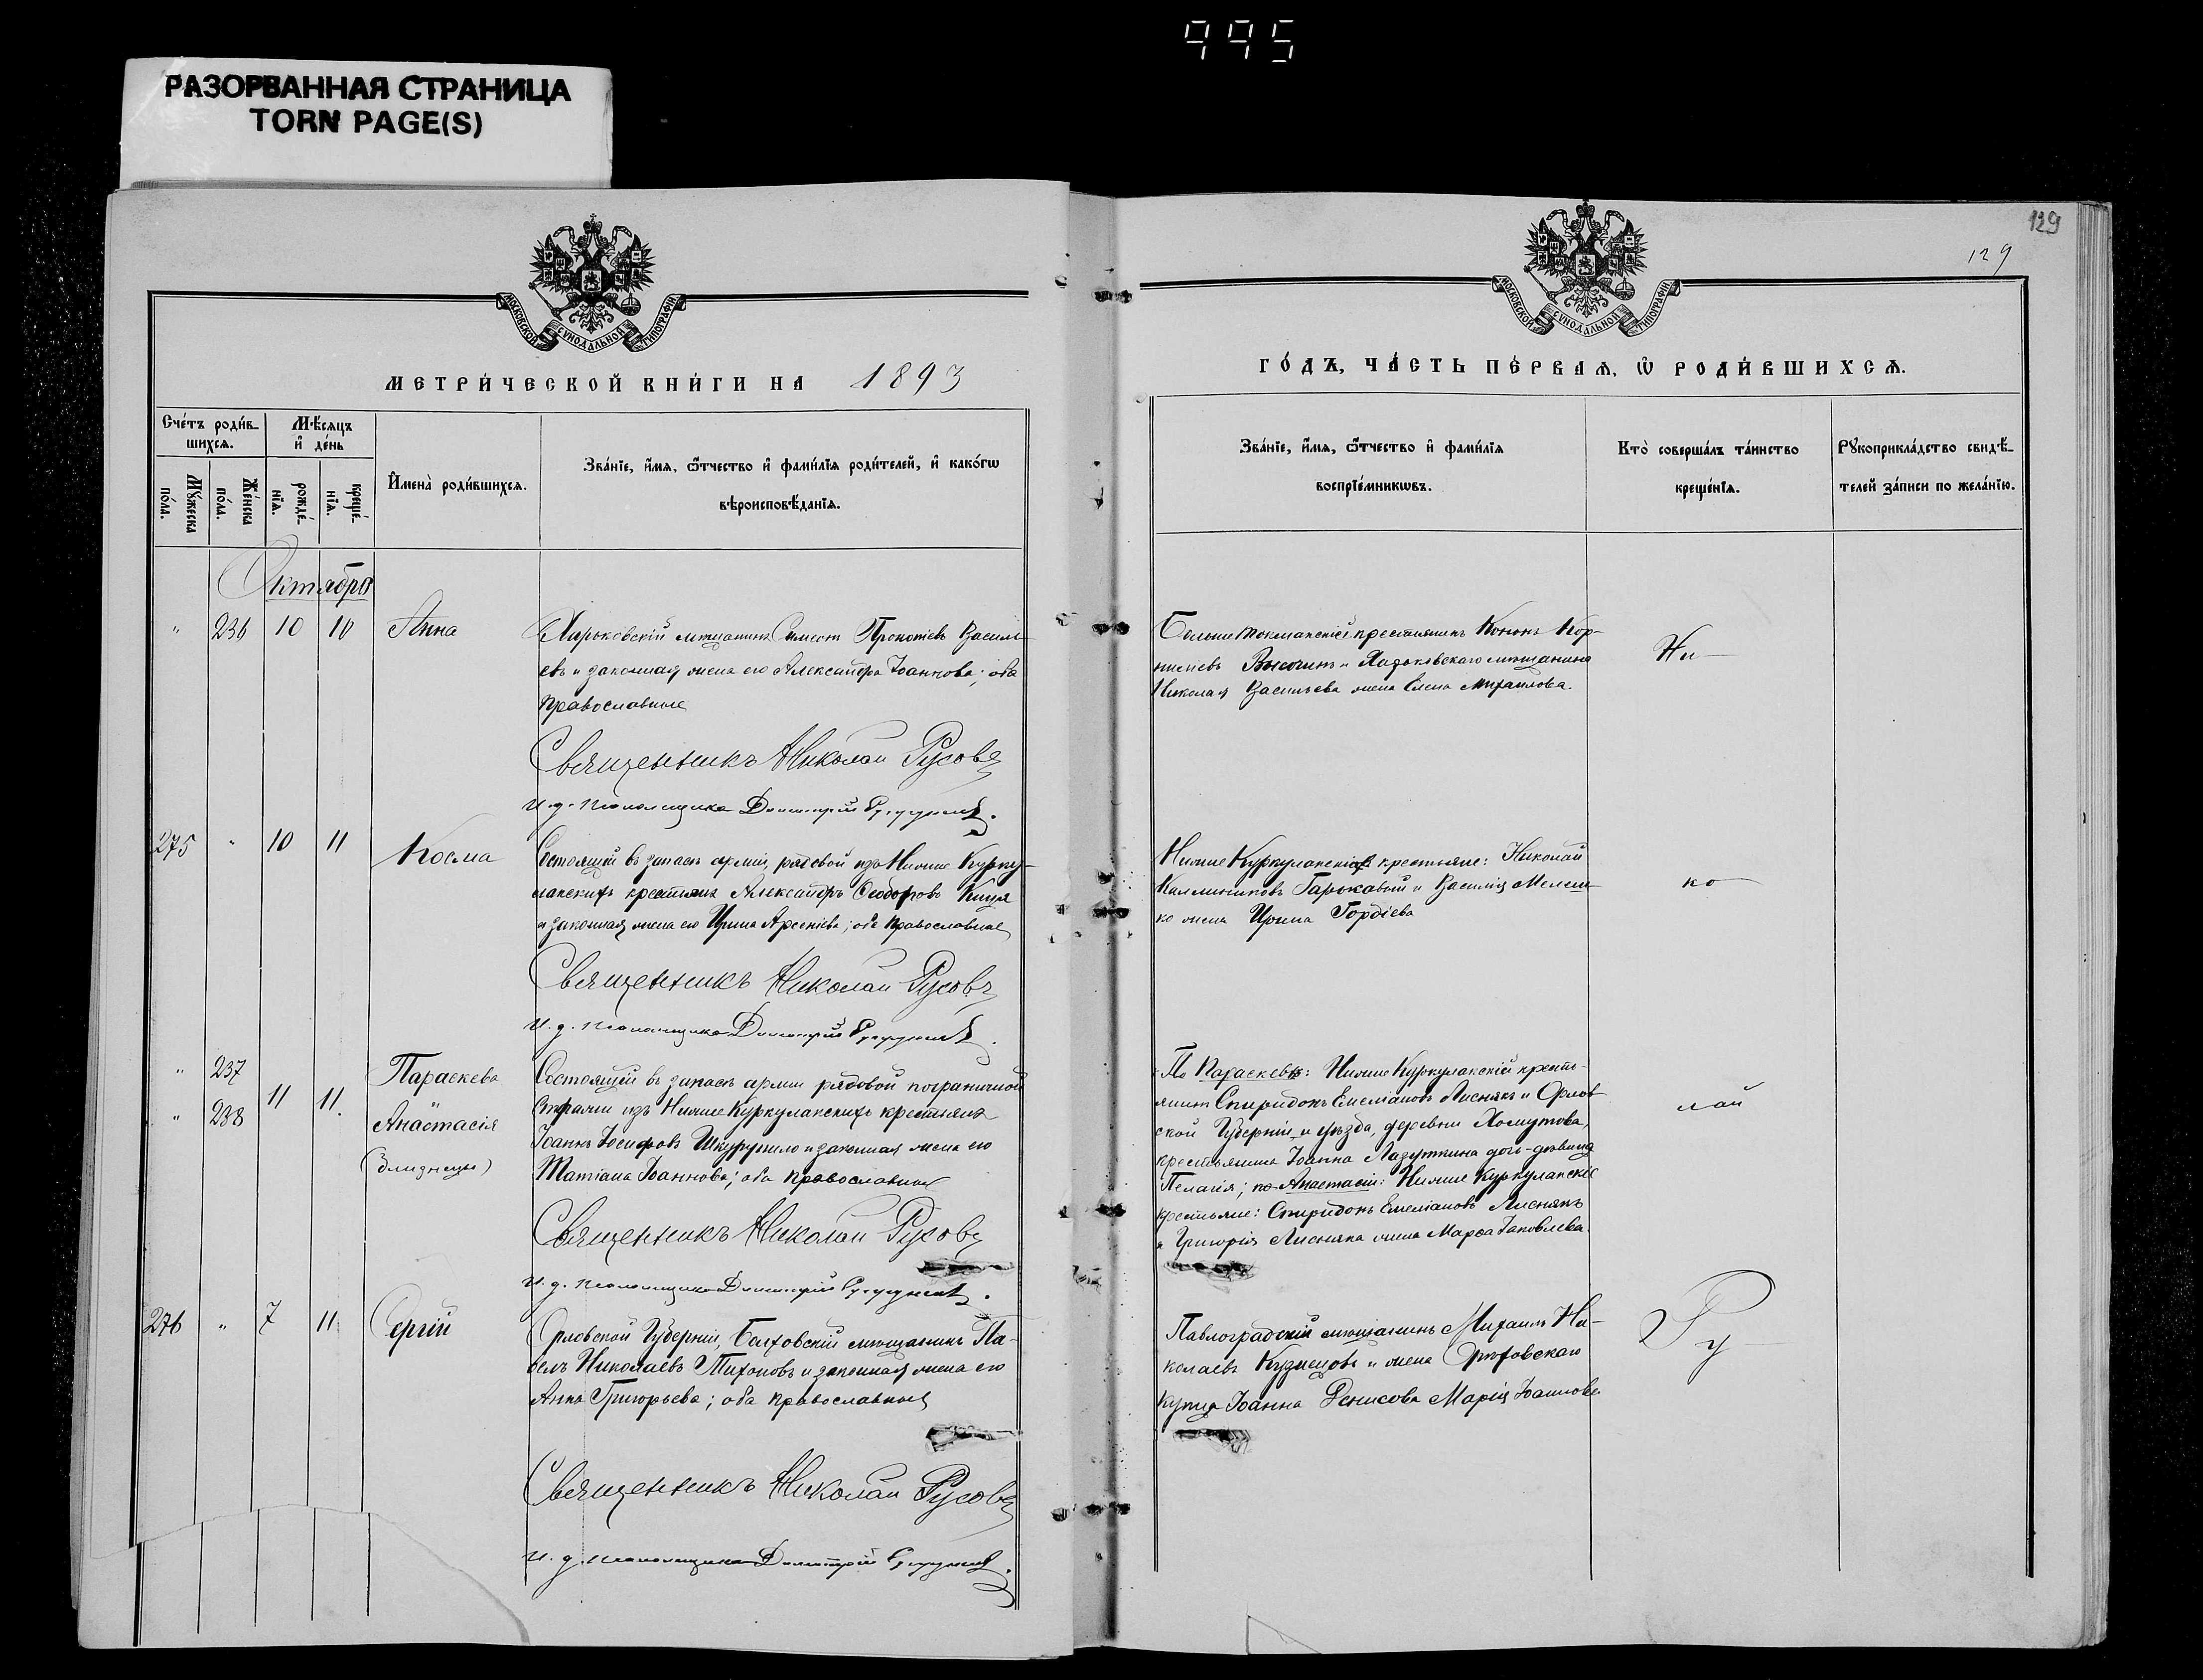 995
РАЗОРВАННАЯ СТРАНИЦА
TORN PAGE(S)
МОСКОВСКОЙ СѴНОДАЛЬНОЙ ТИПОГРАФІИ
МЕТРИ́ЧЕСКОЙ КНИ́ГИ НА 1893
Сче́тъ роди́в-
шихсѧ.
Мꙋ́жеска
по́ла.
Же́нска
по́ла.
Мѣ́сѧцъ
и҆ де́нь
рожде́-
нїѧ.
креще́-
нїѧ.
И҆мена̀ роди́вшихсѧ.
Зва́нїе, и҆́мѧ, ѻ҆́тчество и҆ фами́лїѧ роди́телей, и҆ како́гѡ
вѣроисповѣ́данїѧ.
Октября
" 236 10 10 Анна
Харьковскій мѣщанинъ Симеон Прокопіевъ Василь-
евъ и законная жена его Александра Іоаннова; оба
православные
Священникъ Николай Русовъ
И. д. псаломщика Димитрій
275 " 10 11 Косма
Состоящій въ запасѣ арміи рядовой изъ Нижне Курку-
лакскихъ крестьянъ Александръ Ѳеодоровъ Куця
и законная жена его Ирина Арсеніева; оба православные
Священникъ Николай Русовъ
И. д. псаломщика Димитрій
" 237 11 11 Параскева
" 238 Анастасія
(близнецы)
Состоящій въ запасѣ арміи рядовой пограничной
стражи изъ Нижне Куркулакскихъ крестьянъ
Іоаннъ Іосифовъ Шкурупило и законная жена его
Татіана Іоаннова; оба православные
Священникъ Николай Русовъ
И. д. псаломщика Димитрій
276 " 7 11 Сергій
Орловской Губерніи, Болховскій мѣщанинъ Па-
велъ Николаевъ Тихоновъ и законная жена его
Анна Григорьева; оба православные
Священникъ Николай Русовъ
И. д. псаломщика Димитрій
129
129
МОСКОВСКОЙ СѴНОДАЛЬНОЙ ТИПОГРАФІИ
ГО́ДЪ, ЧА́СТЬ ПЕ́РВАѦ, Ѽ РОДИ́ВШИХСѦ.
Зва́нїе, и҆́мѧ, ѻ҆́тчество и҆ фами́лїѧ
воспрїе́мникѡвъ.
Кто̀ соверша́лъ та́инство
креще́нїѧ.
Рꙋкоприкла́дство свидѣ́-
телей за́писи по жела́нїю.
Больше Токмакскій крестьянинъ Кононъ Кор-
ниліевъ Высочинъ и Харьковскаго мѣщанина
Николая Васильева жена Елена Михаилова.
Ни-
Нижне Куркулакскіе крестьяне: Николай
Каллиниковъ Гарьковой и Василія Мелеш-
ко жена Ирина Гордіева
ко-
По Параскевѣ: Нижне Куркулакскій кресть-
янинъ Спиридонъ Емеліановъ Лиснякъ и Орлов-
ской Губерніи и уѣзда, деревни Хомутова,
крестьянина Іоанна Лазуткина дочь-дѣвица
Пелагія; по Анастасіи: Нижне Куркулакскіе
крестьяне: Спиридонъ Емеліановъ Лиснякъ
и Григорія Лисняка жена Марѳа Іаковлева.
лай
Павлоградскій мѣщанинъ Михаилъ Ни-
колаевъ Кузнецовъ и жена Орѣховскаго
купца Іоанна Денисова Марія Іоаннова
Ру